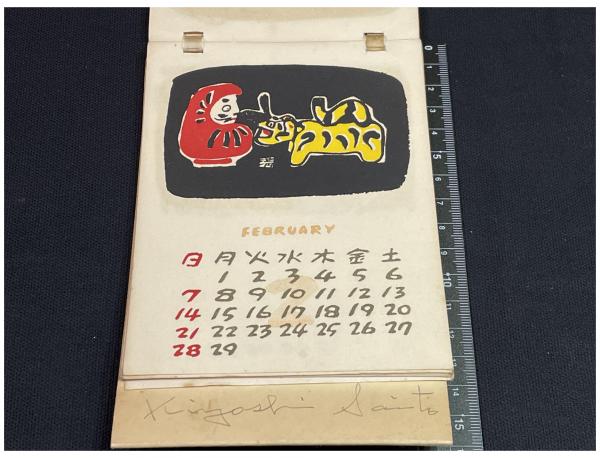 FEBRUARY
日 月 火 水 木 金 土
1 2 3 4 5 6
7 8 9 10 11 12 13
2
14 15 16 17 18 19 20
21 22 23 24 25 26 27
28 29
Kiyoshi Saito
0
5
10
15